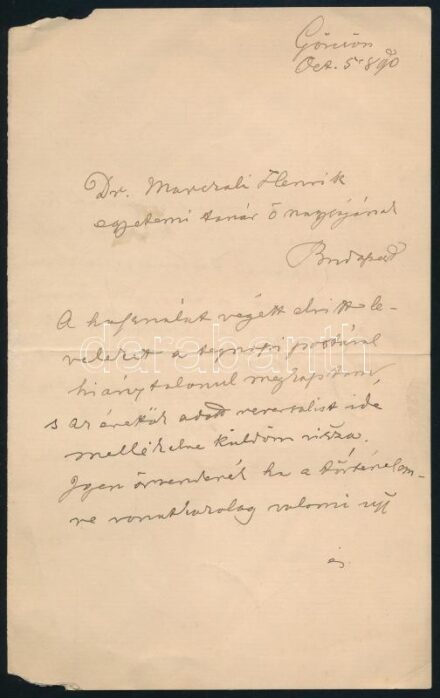 Görcsön
Oct. 5. 890
Dr. Marczali Henrik
egyetemi tanár ő nagyságának
Budapest
A használat végett elvitt le-
veleket a tegnapi postával
hiánytalanul megkaptam,
s az érettök adott reversalist ide
mellékelve küldöm vissza.
Igen örvendenék ha a történelem-
re vonatkozolag valami uj
és
darabanth